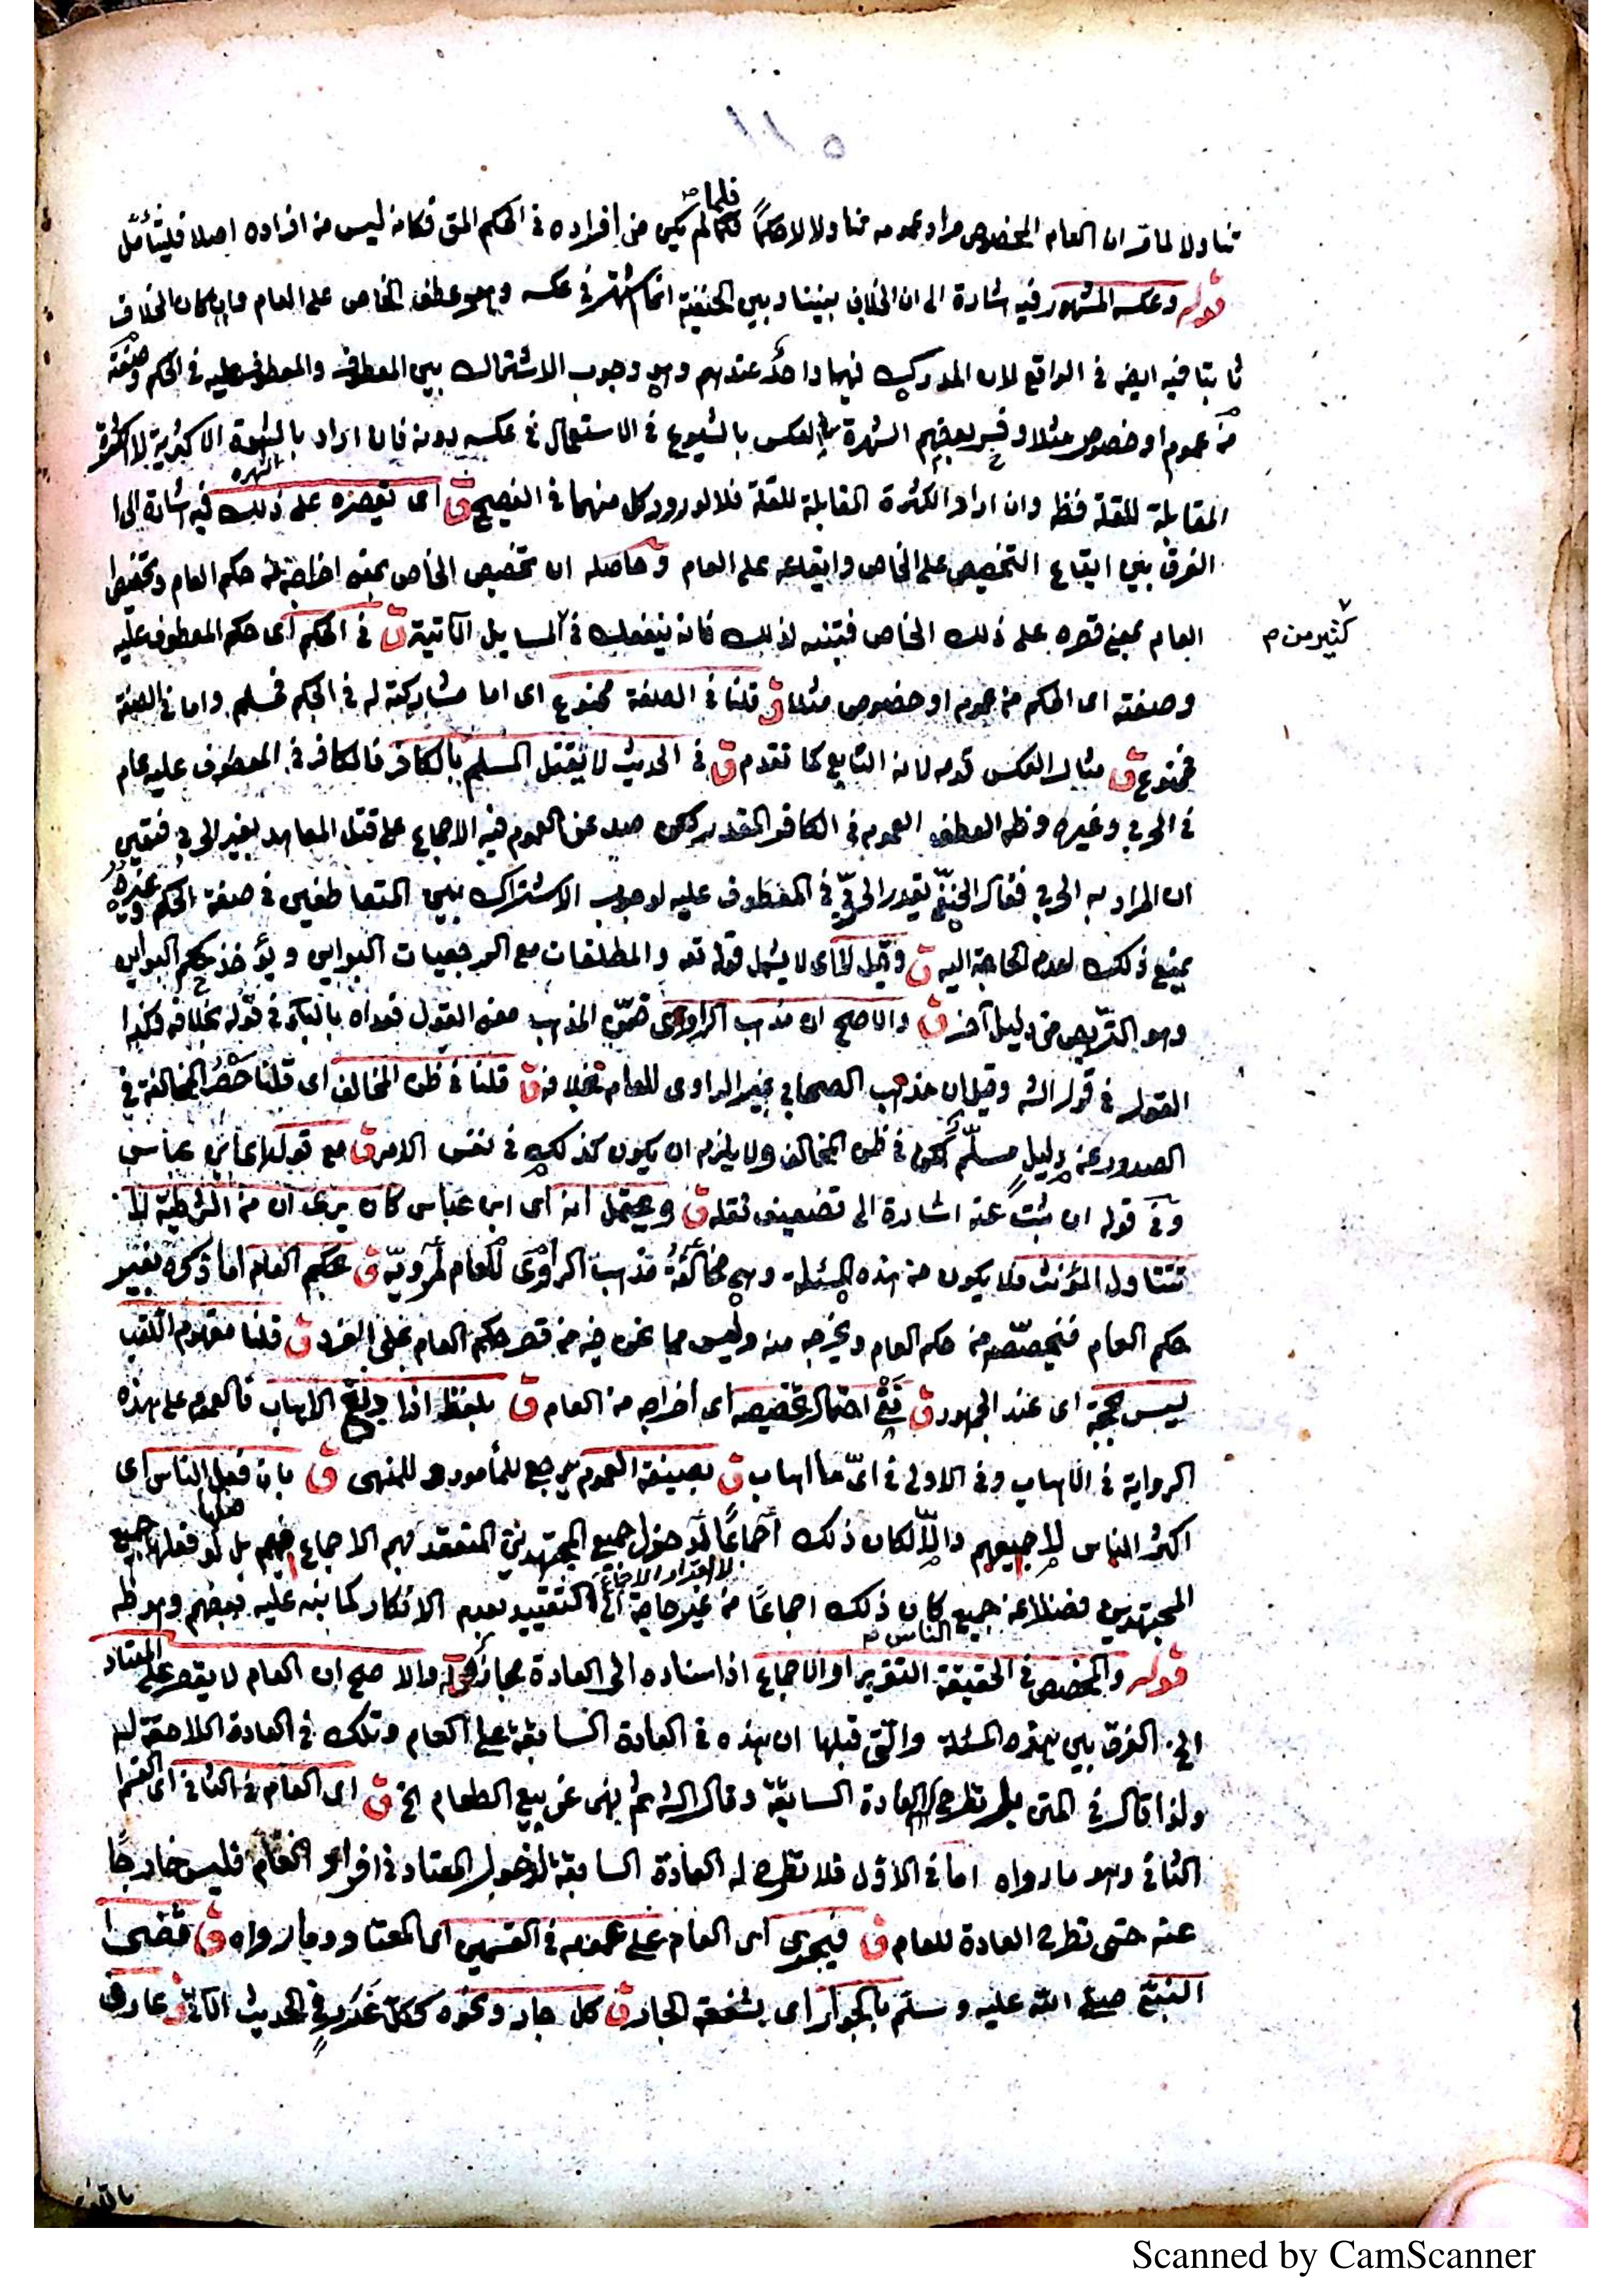 تناولا لما قر ان العام المخصوص مراد عمومه تناولا لا حكما فلما لم يكن من افراده في الحكم المق فكانه ليس من افراده اصلا فليتأمل
قوله وعكسه المشهور فيه اشارة الى ان الخلاف بيننا وبين الحنفية انما اشتهر في عكسه وهو عطف الخاص على العام وان كان الخلاف
ثابتا فيه ايضه في الواقع لان المدرك فيهما واحد عندهم وهو وجوب الاشتراك بين المعطوف والمعطوف عليه في الحكم وصفته
من عموم او خصوص مثلا وفسر بعضهم الشهرة في العكس بالشيوع في الاستعمال في عكسه دونه فان اراد بالشهرة الاكثرية لا الكثرة
المقابلة للقلة فظ وان اراد الكثرة المقابلة للقلة فلا لورود كل منهما في الفصيح ق اى نقصره على ذلك فيه اشارة الى ا
الفرق بين ايقاع التخصيص على الخاص وايقاعه على العام وحاصله ان تخصيص الخاص بمعنى اخراجه من حكم العام وتخصيص
العام بمعنى قصره على ذلك الخاص فتنبه لذلك فانه ينفعك في المسايل الآتية ق في الحكم اى حكم المعطوف عليه
كثير من م
وصفته اى الحكم من عموم او خصوص مثلا ق قلنا في الصفة ممنوع اى اما مشاركته له في الحكم فمسلم واما في الصفة
فممنوع ق مثال العكس قدمه لانه التابع كما تقدم ق في الحديث لا يقتل المسلم بالكافر فالكافر في المعطوف عليه عام
في الحربي وغيره وظ العطف العموم في الكافر المقدر لكن صد عن العموم فيه الاجماع على قتل المعاهد بغير الحربي فتعين
ان المراد به الحربي فقال الحنفي يقدر الحربي في المعطوف عليه لوجوب الاشتراك بين المتعاطفين في صفة الحكم وغيره
يمنع ذلك لعدم الحاجة اليه ق وقيل لا اى لا يشمل قوله تع والمطلقات مع الرجعيات البواين ويؤخذ حكم البواين
وهو التربص من دليل آخر ق والاصح ان مذهب الراوى ضمن المذهب معنى القول فعداه بالباء في قوله بخلافه وكذا
القول في قول الش وقيل ان مذهب الصحابي غير الراوى للعام بخلافه ق قلنا في ظن المخالف اى قلنا حصر المخالفة في
الصدور عن دليل مسلم لكن في ظن المخالف ولا يلزم ان يكون كذلك في نفس الامر ق مع قوله اى ابن عباس
وفي قوله ان ثبت عنه اشارة الى تضعيف نقله ق ويحتمل انه اى ابن عباس كان يرى ان من الشرطية لا
تتناول المؤنث فلا يكون من هذه المسئلة وهي مخالفة مذهب الراوى للعام لمرويه ق بحكم العام اما ذكره بغير
حكم العام فيخصصه من حكم العام ويخرجه منه وليس مما نحن فيه من قصر حكم العام على الفرد ق قلنا مفهوم اللقب
ليس بحجة اى عند الجمهور ق نفي احتمال تخصيصه اى اخراجه من العام ق بلفظ اذا دبغ الاهاب فالعموم على هذه
الرواية في الاهاب وفي الاولى في اى ما اهاب ق بصيغة العموم يرجع للمأمور و للمنهى ق بان فعل الناس اى
اكثر الناس لا جميعهم والا لكان ذلك اجماعا لدخول جميع المجتهدين المنعقد بهم الاجماع فيهم بل لو فعلها جميع
المجتهدين فضلا عن جميع الناس م كان ذلك اجماعا من غير حاجة الى التقييد بعدم الانكار كما بنه عليه بعضهم وهو ظ
قوله والمخصص في الحقيقة التقرير او الاجماع اذا اسناده الى العادة مجاز قوله والاصح ان العام لا يقصر على المعتاد
الخ. الفرق بين هذه المسئلة والتي قبلها ان هذه في العادة السابقة على العام وتلك في العادة اللاحقة له
ولذا قال في المتن العادة السابقة وقال الش ثم نهى عن بيع الطعام الخ ق اى العام في الثاني اى القسم
الثاني وهو ما رواه اما في الاول فلا تطرح له العادة السابقة لدخول المعتاد في افراد العام فليس خارجا
عنه حتى تطرح العادة للعام ق فيجرى اى العام على عمومه في القسمين اى المعتاد وما رواه ق قضى ا
النبي صلى الله عليه وسلم بالجوار اى بشفعة الجار ق كل جار ونحوه ككل غرر في الحديث الآتي ق عارف